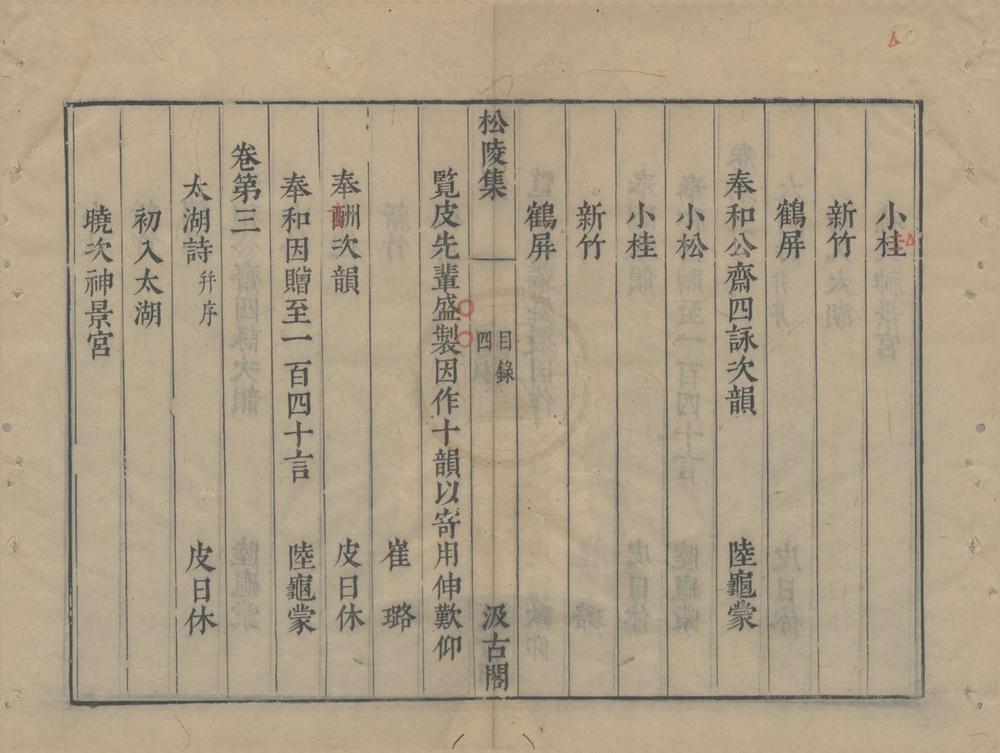 小桂
新竹
鶴屏
奉和公齋四詠次韻　陸龜蒙
小松
小桂
新竹
鶴屏
松陵集　目錄　四　汲古閣
覽皮先輩盛製因作十韻以寄用伸歎仰
崔璐
奉酬次韻　皮日休
奉和因贈至一百四十言　陸龜蒙
卷第三
太湖詩并序　皮日休
初入太湖
曉次神景宮